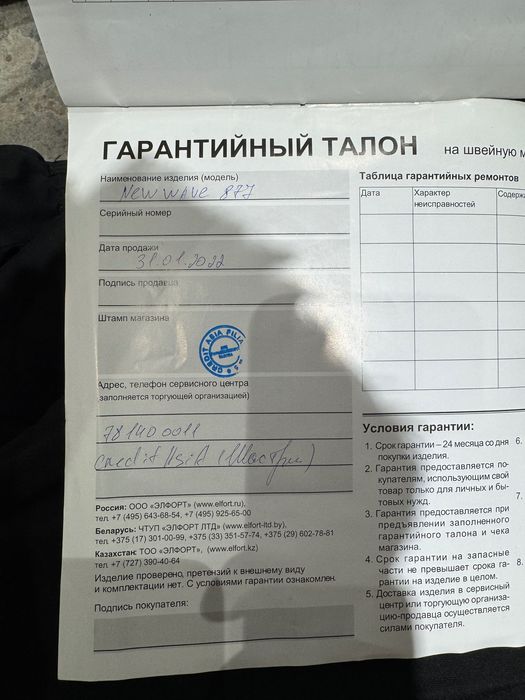 ГАРАНТИЙНЫЙ ТАЛОН на швейную м
Наименование изделия (модель)
New wave 877
Серийный номер
Дата продажи
31.01.2022
Подпись продавца
Штамп магазина
CREDIT ASIA FILIA
Адрес, телефон сервисного центра
(заполняется торгующей организацией)
78140.0011
credit Asia
Россия: ООО «ЭЛФОРТ» (www.elfort.ru),
тел. +7 (495) 643-68-54, +7 (495) 925-65-00
Беларусь: ЧТУП «ЭЛФОРТ ЛТД» (www.elfort-ltd.by),
тел. +375 (17) 301-00-99, +375 (33) 351-57-74, +375 (29) 602-78-81
Казахстан: ТОО «ЭЛФОРТ», (www.elfort.kz)
тел. +7 (727) 390-40-64
Изделие проверено, претензий к внешнему виду
и комплектации нет. С условиями гарантии ознакомлен.
Подпись покупателя:
Таблица гарантийных ремонтов
Дата
Характер
неисправностей
Содерж
Условия гарантии:
1. Срок гарантии – 24 месяца со дня
покупки изделия.
2. Гарантия предоставляется по-
купателям, использующим свой
товар только для личных и бы-
товых нужд.
3. Гарантия предоставляется при
предъявлении заполненного
гарантийного талона и чека
магазина.
4. Срок гарантии на запасные
части не превышает срока га-
рантии на изделие в целом.
5. Доставка изделия в сервисный
центр или торгующую организа-
цию-продавца осуществляется
силами покупателя.
6.
7.
8.